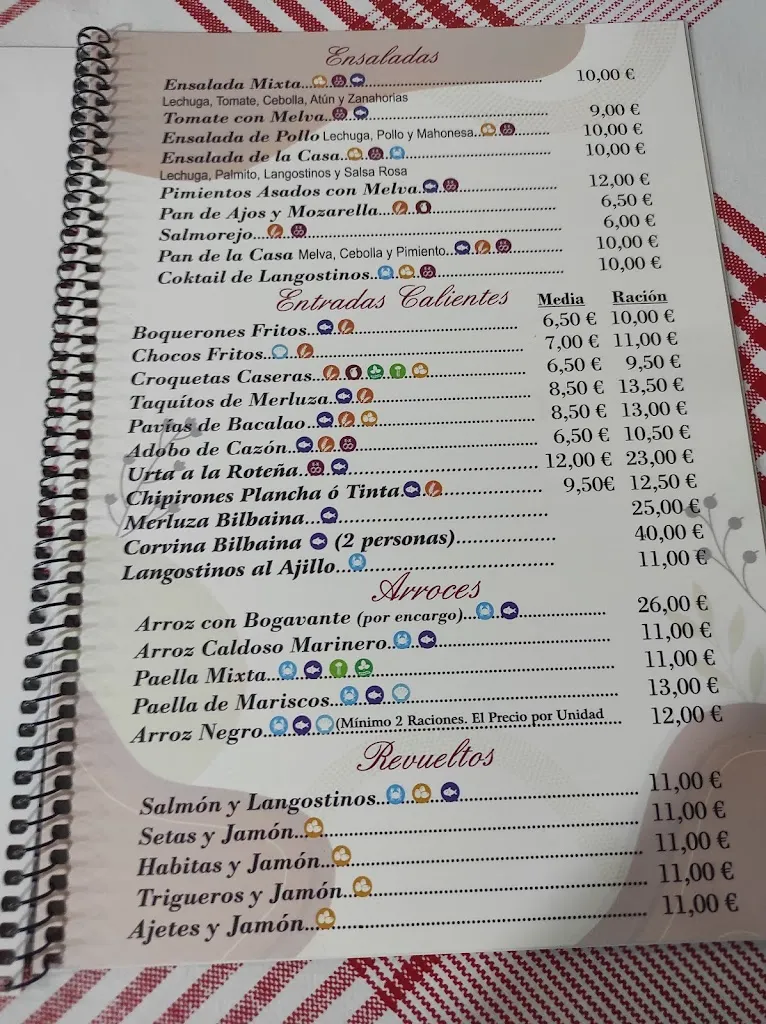 Ensaladas
Ensalada Mixta.......... 10,00 €
Lechuga, Tomate, Cebolla, Atún y Zanahorias
Tomate con Melva.......... 9,00 €
Ensalada de Pollo Lechuga, Pollo y Mahonesa.......... 10,00 €
Ensalada de la Casa.......... 10,00 €
Lechuga, Palmito, Langostinos y Salsa Rosa
Pimientos Asados con Melva.......... 12,00 €
Pan de Ajos y Mozarella.......... 6,50 €
Salmorejo.......... 6,00 €
Pan de la Casa Melva, Cebolla y Pimiento.......... 10,00 €
Coktail de Langostinos.......... 10,00 €
Entradas Calientes Media Ración
Boquerones Fritos.......... 6,50 € 10,00 €
Chocos Fritos.......... 7,00 € 11,00 €
Croquetas Caseras.......... 6,50 € 9,50 €
Taquítos de Merluza.......... 8,50 € 13,50 €
Pavías de Bacalao.......... 8,50 € 13,00 €
Adobo de Cazón.......... 6,50 € 10,50 €
Urta a la Roteña.......... 12,00 € 23,00 €
Chipirones Plancha ó Tinta.......... 9,50€ 12,50 €
Merluza Bilbaina.......... 25,00 €
Corvina Bilbaina (2 personas).......... 40,00 €
Langostinos al Ajillo.......... 11,00 €
Arroces
Arroz con Bogavante (por encargo).......... 26,00 €
Arroz Caldoso Marinero.......... 11,00 €
Paella Mixta.......... 11,00 €
Paella de Mariscos.......... 13,00 €
Arroz Negro..(Mínimo 2 Raciones. El Precio por Unidad.... 12,00 €
Revueltos
Salmón y Langostinos.......... 11,00 €
Setas y Jamón.......... 11,00 €
Habitas y Jamón.......... 11,00 €
Trigueros y Jamón.......... 11,00 €
Ajetes y Jamón.......... 11,00 €